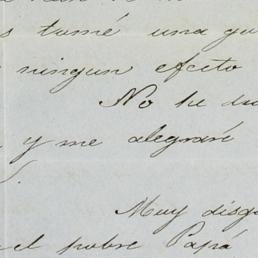 s tomé una
ningun efecto
No he
y me alegrari
Muy disg
el pobre Papá